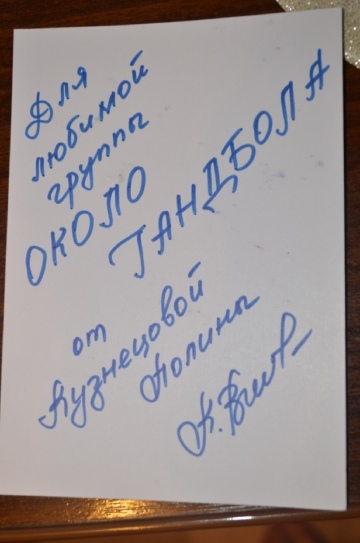 Для
любимой
группы
ОКОЛО
ГАНДБОЛА
от
Кузнецовой
Полины